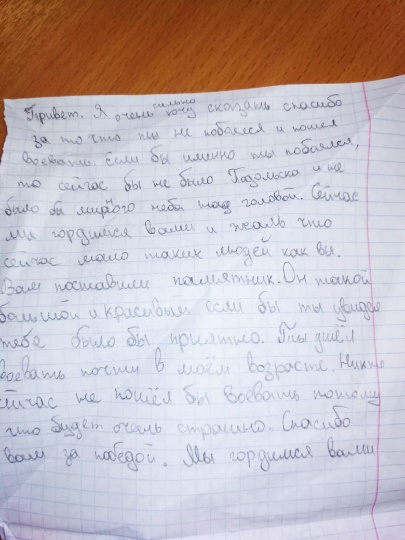 Привет. Я очень сильно хочу сказать спасибо
за то что ты не побоялся и пошел
воевать. Если бы именно ты побоялся,
то сейчас бы не было Подольска и не
было бы мирного неба над головой. Сейчас
мы гордимся вами и жаль что
сейчас мало таких людей как вы.
Вам поставили памятник. Он такой
большой и красивый если бы ты увидел
тебе было бы приятно. Ты ушёл
воевать почти в моём возрасте. Никто
сейчас не пошёл бы воевать потому
что будет очень страшно. Спасибо
вам за победой. Мы гордимся вами